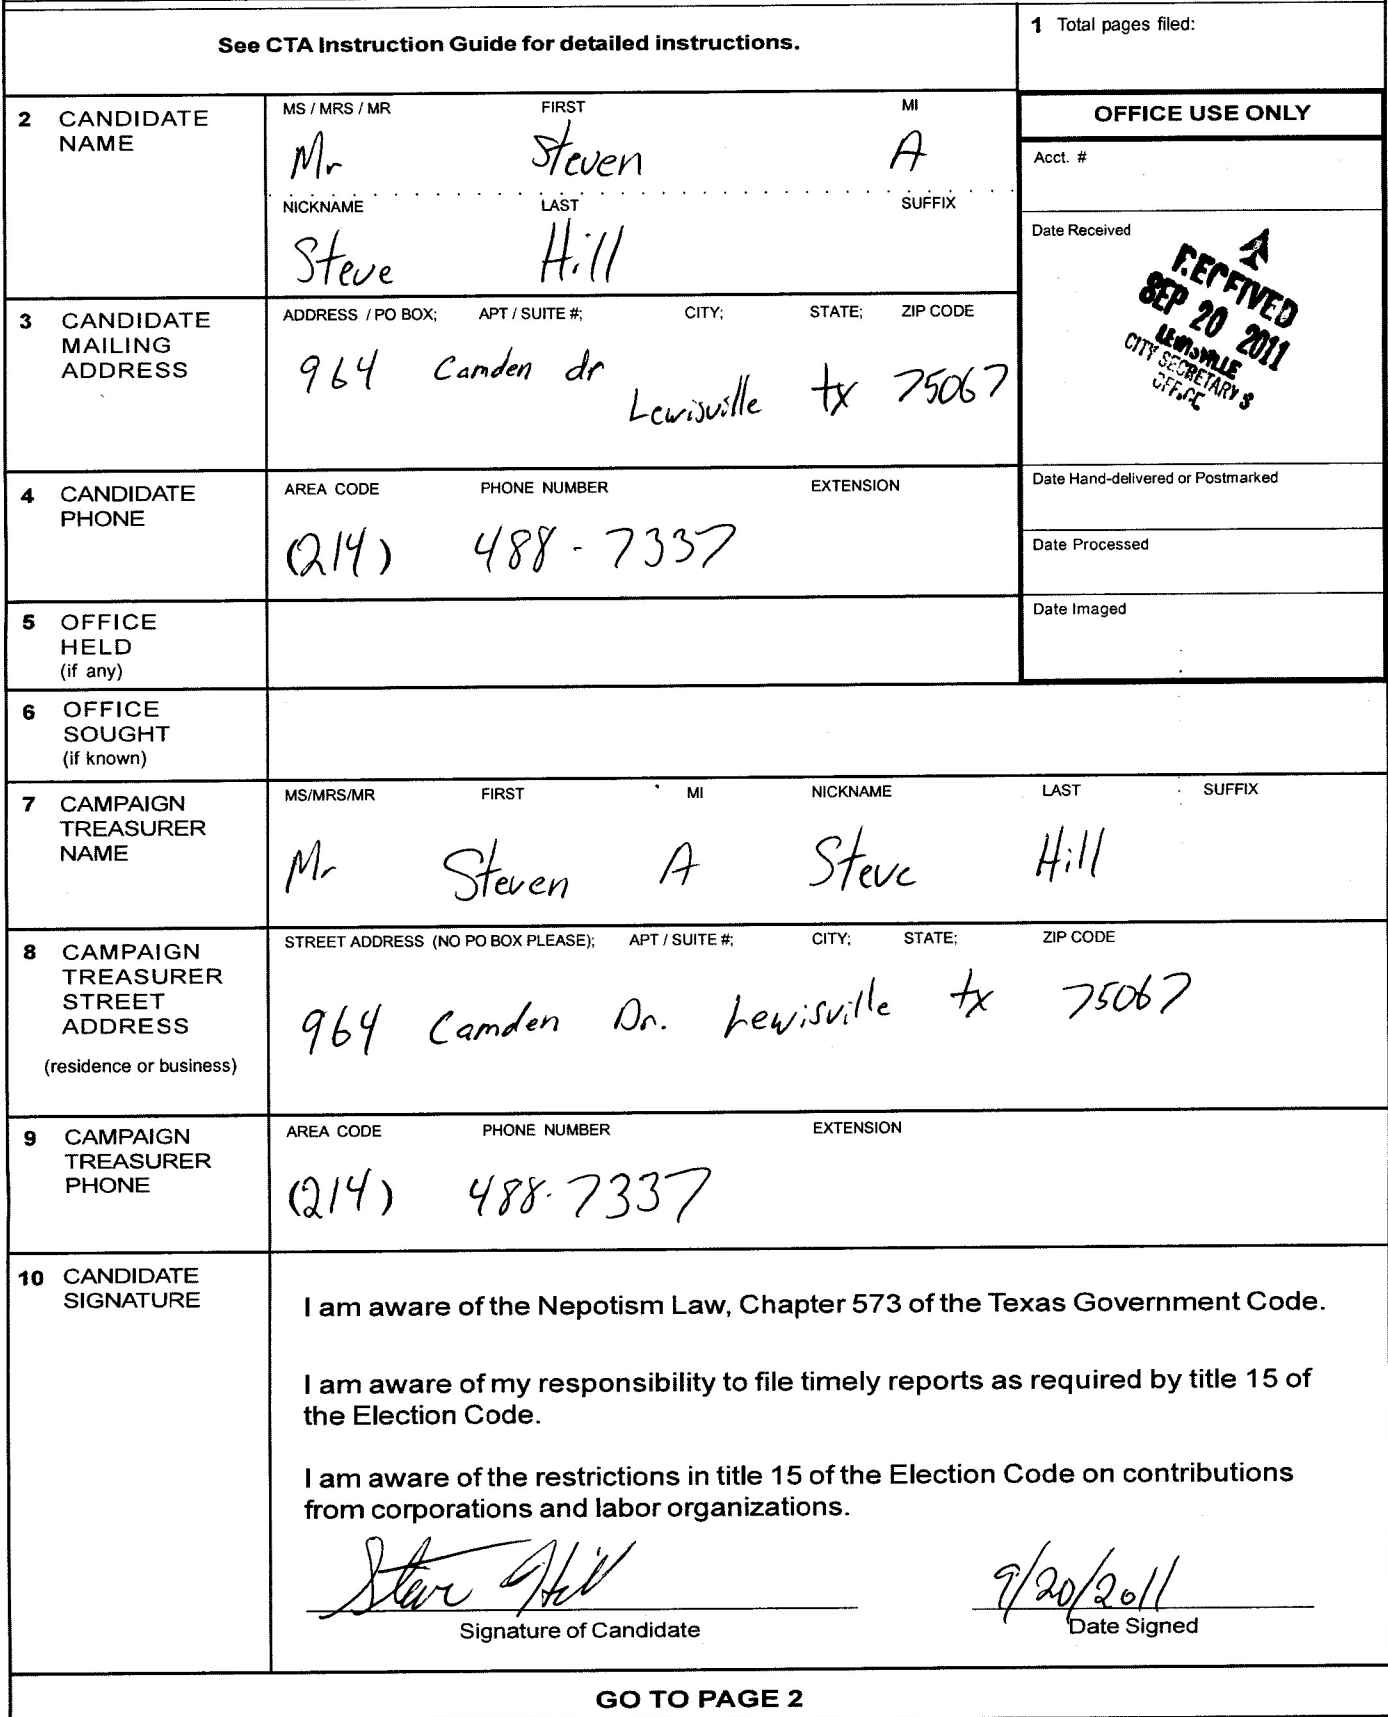 See CTA Instruction Guide for detailed instructions.
1 Total pages filed:
2 CANDIDATE
NAME
MS / MRS / MR FIRST MI
Mr Steven A
NICKNAME LAST SUFFIX
Steve Hill
OFFICE USE ONLY
Acct. #
Date Received
RECEIVED
SEP 20 2011
LEWISVILLE
CITY SECRETARY'S
OFFICE
3 CANDIDATE
MAILING
ADDRESS
ADDRESS / PO BOX; APT / SUITE #; CITY; STATE; ZIP CODE
964 Camden dr
Lewisville tx 75067
4 CANDIDATE
PHONE
AREA CODE PHONE NUMBER EXTENSION
(214) 488-7337
Date Hand-delivered or Postmarked
Date Processed
Date Imaged
5 OFFICE
HELD
(if any)
6 OFFICE
SOUGHT
(if known)
7 CAMPAIGN
TREASURER
NAME
MS/MRS/MR FIRST MI NICKNAME LAST SUFFIX
Mr Steven A Steve Hill
8 CAMPAIGN
TREASURER
STREET
ADDRESS
(residence or business)
STREET ADDRESS (NO PO BOX PLEASE); APT / SUITE #; CITY; STATE; ZIP CODE
964 Camden Dr. Lewisville tx 75067
9 CAMPAIGN
TREASURER
PHONE
AREA CODE PHONE NUMBER EXTENSION
(214) 488-7337
10 CANDIDATE
SIGNATURE
I am aware of the Nepotism Law, Chapter 573 of the Texas Government Code.
I am aware of my responsibility to file timely reports as required by title 15 of
the Election Code.
I am aware of the restrictions in title 15 of the Election Code on contributions
from corporations and labor organizations.
Steve Hill 9/20/2011
Signature of Candidate Date Signed
GO TO PAGE 2